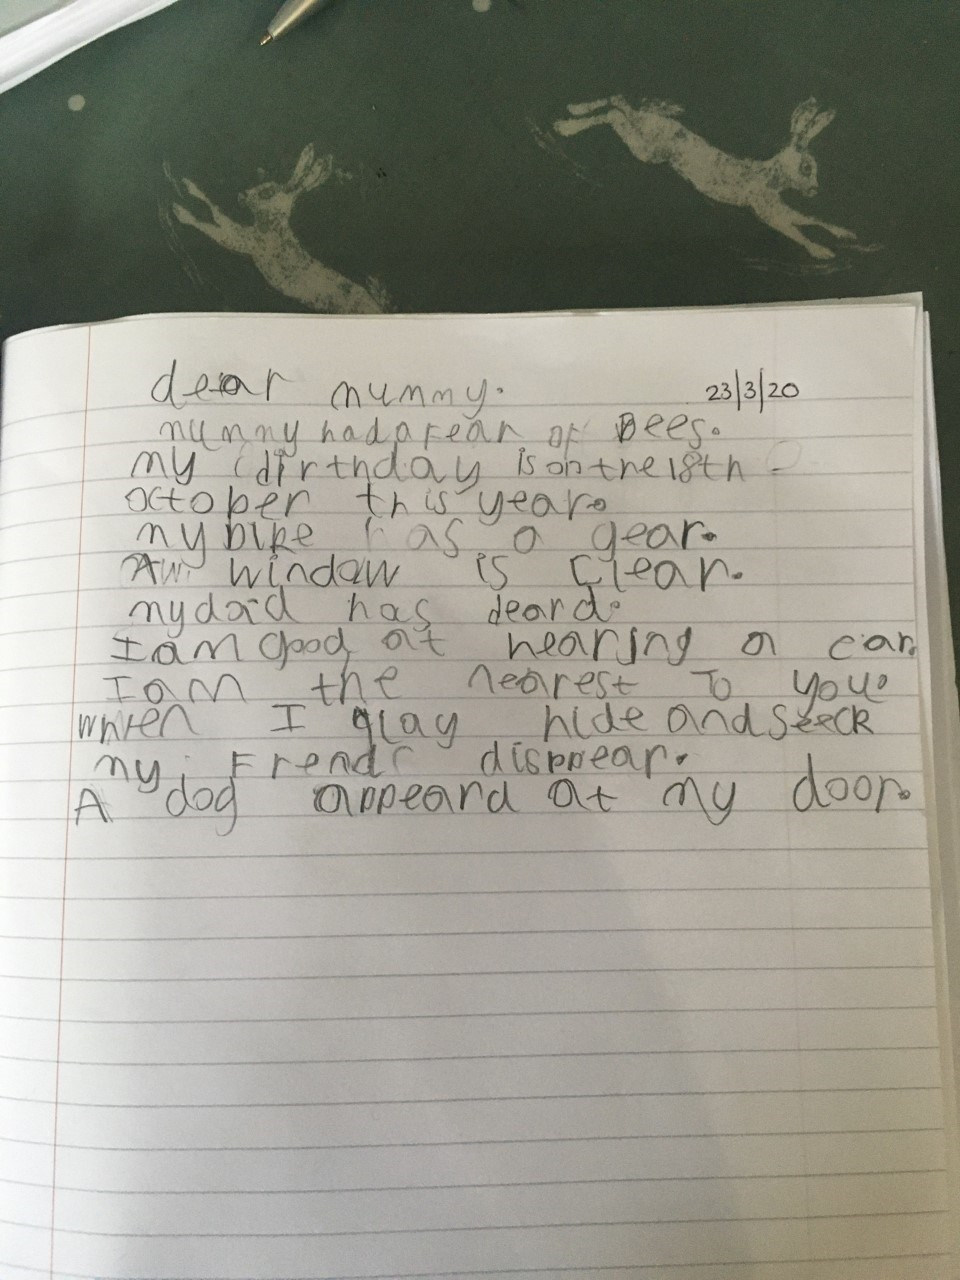 dear mummy. 23/3/20
mummy had a fear of Bees.
my dirthday is on the 18th
october this year.
my bike has a gear.
Aw window is Clear.
my dad has deard.
I am good at hearing a car.
I am the nearest To you.
when I play hide and seeck
my Frends disppear.
A dog appeard at my door.